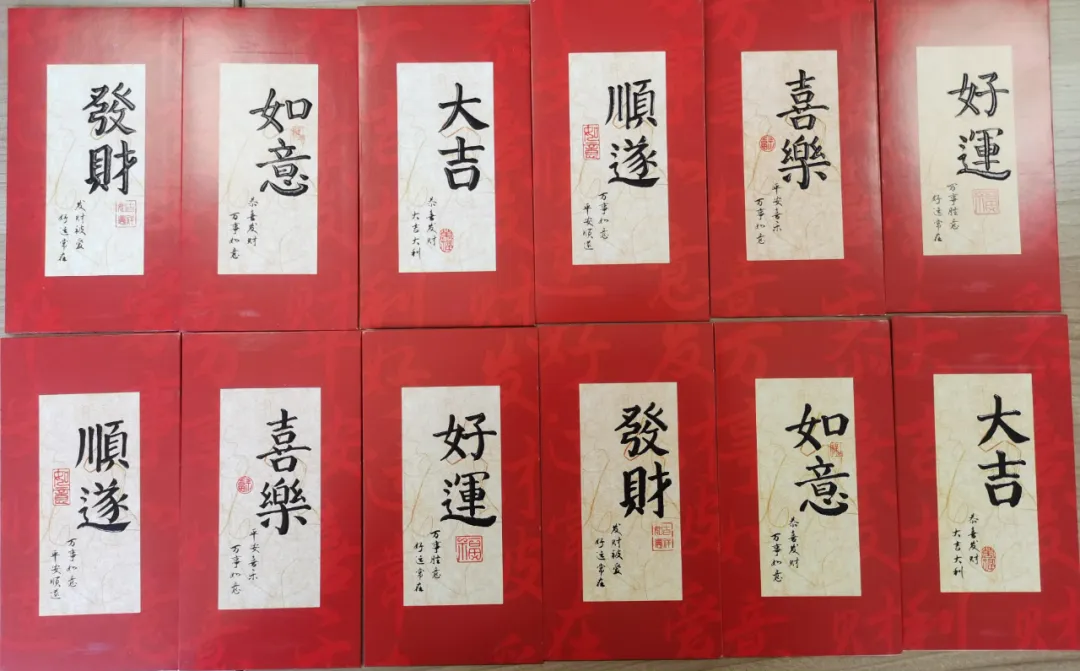 發財
发财被爱
好运常在
如意
恭喜发财
万事如意
大吉
恭喜发财
大吉大利
順遂
万事如意
平安顺遂
喜樂
平安喜乐
万事如意
好運
万事胜意
好运常在
順遂
万事如意
平安顺遂
喜樂
平安喜乐
万事如意
好運
万事胜意
好运常在
發財
发财被爱
好运常在
如意
恭喜发财
万事如意
大吉
恭喜发财
大吉大利